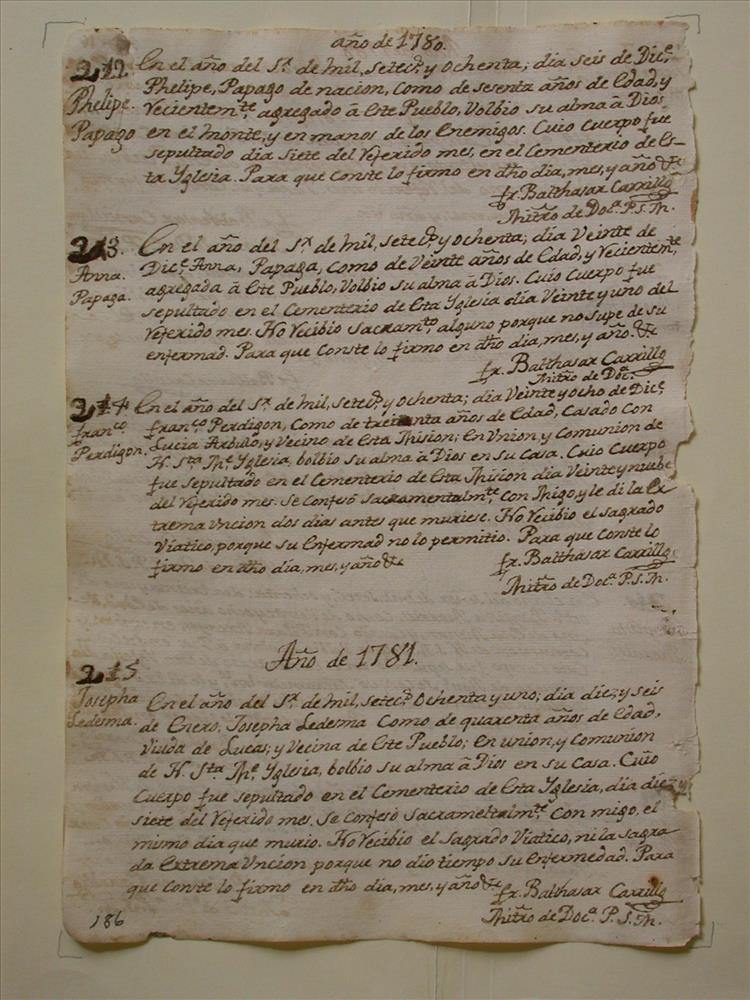 año de 1780.
212
Phelipe.
Papago
En el año del S.r de mil, setec.s y ochenta; dia seis de Dic.e
Phelipe, Papago de nacion, como de sesenta años de Edad, y
recientem.te agregado â Este Pueblo, Volbio su alma â Dios
en el monte, y en manos de los Enemigos. Cuio cuerpo fue
sepultado dia siete del referido mes, en el Cementerio de Es-
ta Yglesia. Para que conste lo firmo en dho dia, mes, y año &c
fr. Balthasar Carrillo
Mitro de Doc.a P. S. M.
213.
Anna.
Papaga.
En el año del S.r de mil, setec.s y ochenta; dia Veinte de
Dic.e Anna, Papaga, como de Veinte años de Edad, y recientem.te
agregada â Este Pueblo, Volbio su alma â Dios. Cuio Cuerpo fue
sepultado en el Cementerio de Esta Yglesia dia Veinte y uno del
referido mes. No recibio sacram.to alguno porque no supe de su
enfermad. Para que conste lo firmo en dho dia, mes, y año. &c
fr. Balthasar Carrillo
Mitro de Doc.a
214
fran.co
Perdigon.
En el año del S.r de mil, setec.s y ochenta; dia Veinte y ocho de Dic.e
fran.co Perdigon, como de treinta años de Edad, Casado con
Lucia Arbillo, y Vecino de Esta Mision; En Union, y Comunion de
N. S.ta M.e Yglesia, bolbio su alma â Dios en su Casa. Cuio Cuerpo
fue sepultado en el Cementerio de Esta Mision dia Veinte y nuebe
del referido mes. Se confesó sacramentalm.te con Migo, y le di la Ex
trema Uncion dos dias antes que muriese. No recibio el sagrado
Viatico, porque su Enfermad no lo permitio. Para que conste lo
firmo en dho dia, mes, y año &c
fr. Balthasar Carrillo
Mitro de Doc.a P. S. M.
Año de 1781.
215
Josepha
Ledesma.
En el año del S.r de mil, setec.s Ochenta y uno; dia diez y seis
de Enero, Josepha Ledesma Como de quarenta años de Edad,
Viuda de Lucas, y Vecina de Este Pueblo; En union, y Comunion
de N. S.ta M.e Yglesia, bolbio su alma â Dios en su Casa. Cuio
Cuerpo fue sepultado en el Cementerio de Esta Yglesia, dia diez y
siete del referido mes. Se confesó Sacrametalm.te con migo, el
mismo dia que murio. No recibio el Sagrado Viatico, ni la sagra
da Extrema Uncion porque no dio tiempo su Enfermedad. Para
que Conste lo firmo en dho dia, mes, y año &c fr. Balthasar Carrillo
Mitro de Doc.a P. S. M.
186